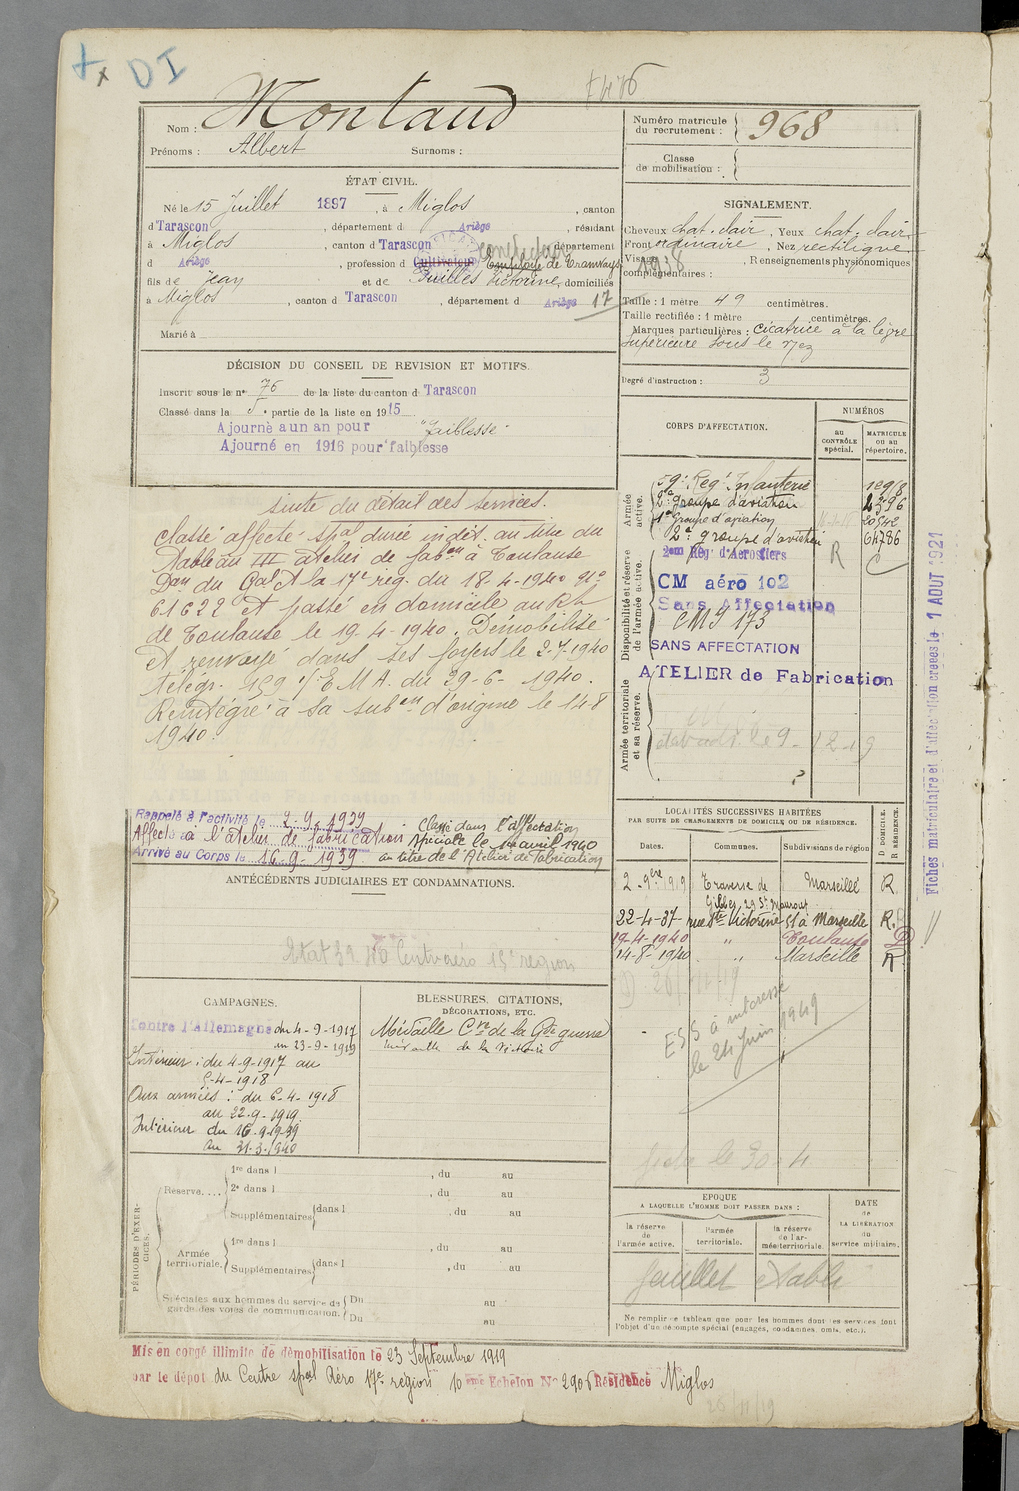 DI
Nom : Montaud
Prénoms : Albert Surnoms :
Numéro matricule
du recrutement : 968
Classe
de mobilisation :
ÉTAT CIVIL.
Né le 15 Juillet 1897, à Miglos, canton
d Tarascon, département d Ariège, résidant
à Miglos, canton d Tarascon, département
d Ariège, profession d Cultivateur Employé de Tramways
fils de Jean et de Victorine, domiciliés
à Miglos, canton d Tarascon, département d Ariège 17
Marié à
SIGNALEMENT.
Cheveux chat. clair, Yeux chat. clair
Front ordinaire, Nez rectiligne
Visage, Renseignements physionomiques
complémentaires :
1938
Taille : 1 mètre 49 centimètres.
Taille rectifiée : 1 mètre centimètres.
Marques particulières : cicatrice à la lèvre
supérieure sous le nez
Degré d'instruction : 3
DÉCISION DU CONSEIL DE REVISION ET MOTIFS.
Inscrit sous le n° 76 de la liste du canton d Tarascon
Classé dans la 5e partie de la liste en 1915
Ajourné a un an pour "faiblesse"
Ajourné en 1916 pour faiblesse
suite du détail des services.
Classé affecté spal durée indét. au titre du
Tableau III atelier de fabon à Toulouse
Don du Gal Ct la 17e reg. du 18-4-1940 No
61622 et passé en domicile au Rt
de Toulouse le 19-4-1940. Démobilisé
et renvoyé dans ses foyers le 2-7-1940
télégr. 159 1/E.M.A. du 29-6-1940.
Réintégré à sa subon d'origine le 14-8
1940.
Rappelé à l'activité le 2-9-1939
Affecté à l'atelier de fabrication
Arrivé au Corps le 16-9-1939
Classé dans l'affectation
spéciale le 1er avril 1940
au titre de l'Atelier de Fabrication
CORPS D'AFFECTATION.
NUMÉROS
au
CONTRÔLE
spécial.
MATRICULE
ou au
répertoire.
Armée
active.
59e Reg. Infanterie
2e groupe d'aviation
1er Groupe d'aviation 20542
2e groupe d'aviation 64786
Disponibilité et réserve
de l'armée active.
2em Rég. d'Aerostiers R
CM aéro 102
Sans Affectation
CMI 173
SANS AFFECTATION
ATELIER de Fabrication
Armée territoriale
et sa réserve.
Fiches matriculaire et d'affectation créées le 1 AOUT 1921
ANTÉCÉDENTS JUDICIAIRES ET CONDAMNATIONS.
LOCALITÉS SUCCESSIVES HABITÉES
PAR SUITE DE CHANGEMENTS DE DOMICILE OU DE RÉSIDENCE.
D DOMICILE.
R RÉSIDENCE.
Dates. Communes. Subdivisions de région
2-9bre 1919 Traverse de Marseille R.
22-4-37 rue Ste Victorine 51 à Marseille R.
19-4-1940 " Toulouse D
14-8-1940 " Marseille R
ESS à intéressé
le 24 Juin 1949
CAMPAGNES.
Contre l'Allemagne du 4-9-1917
au 23-9-1919
Intérieur : du 4-9-1917 au
5-4-1918
Aux armées : du 6-4-1918
au 22-9-1919
Intérieur du 16-9-1939
au 31-3-1940
BLESSURES, CITATIONS,
DÉCORATIONS, ETC.
Médaille Cve de la Gde guerre
Médaille de la Victoire
PÉRIODES D'EXERCICES.
Réserve....
1re dans l , du au
2e dans l , du au
Supplémentaires dans l , du au
Armée
territoriale.
1re dans l , du au
Supplémentaires dans l , du au
Spéciales aux hommes du service de
garde des voies de communication.
Du au
Du au
EPOQUE
A LAQUELLE L'HOMME DOIT PASSER DANS :
la réserve
de
l'armée active.
l'armée
territoriale.
la réserve
de l'armée territoriale.
DATE
de
LA LIBÉRATION
du
service militaire.
feuillet établi
Ne remplir ce tableau que pour les hommes dont les services font
l'objet d'un décompte spécial (engagés, condamnés, omis, etc.).
Mis en congé illimité de démobilisation le 23 Septembre 1919
par le dépot du Centre spal Aéro 17e région 10eme Echelon No 2906 Résidence Miglos